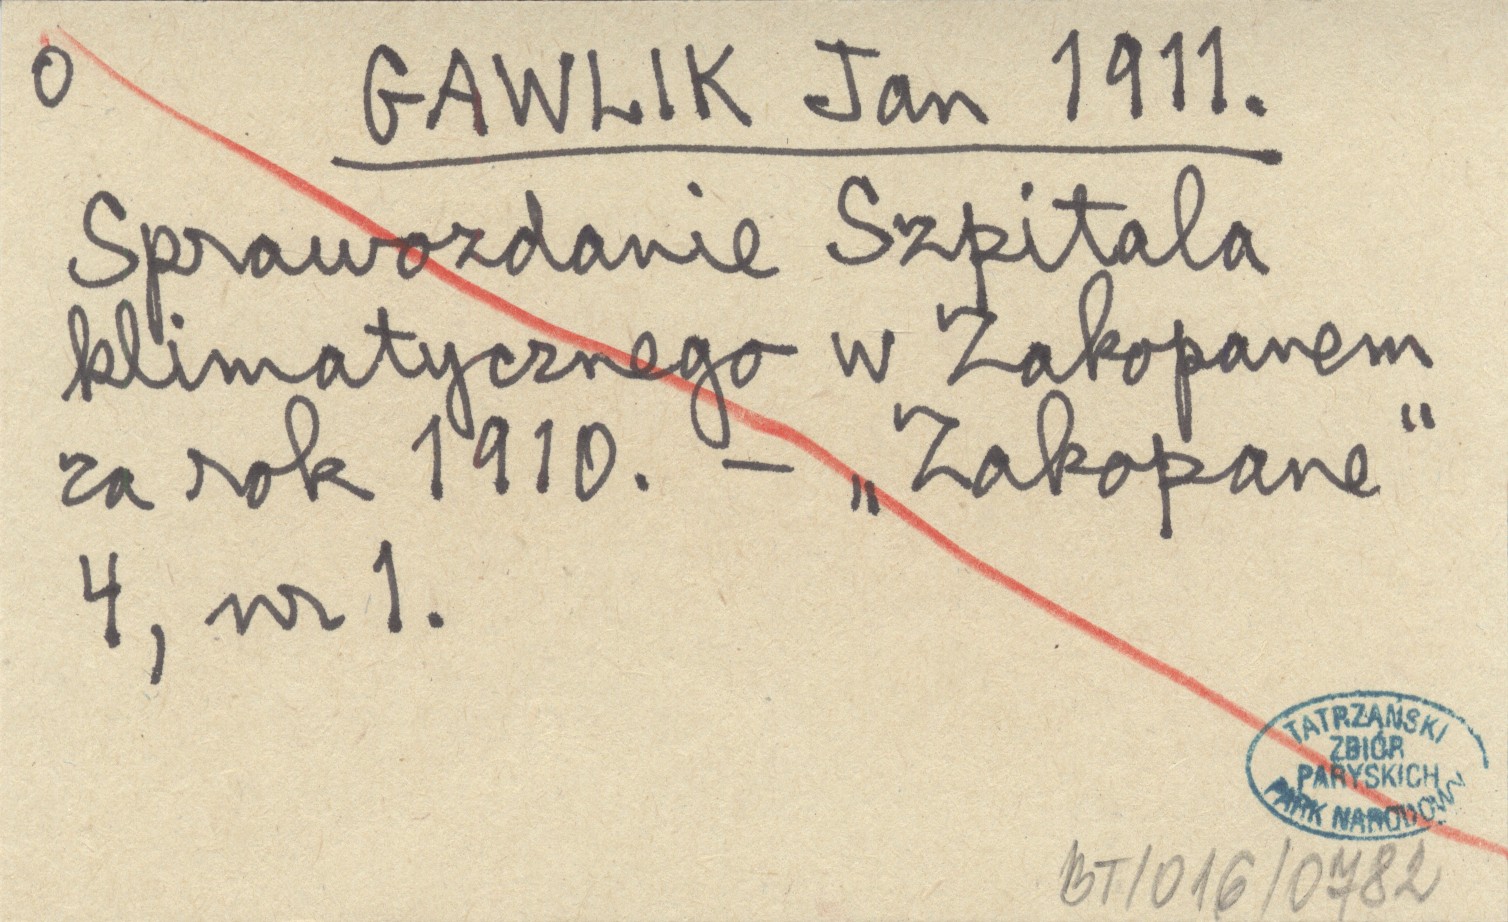 O
GAWLIK Jan 1911.
Sprawozdanie Szpitala
klimatycznego w Zakopanem
za rok 1910. – „Zakopane"
4, nr 1.
TATRZAŃSKI
ZBIÓR
PARYSKICH
PARK NARODOWY
BT/016/0782